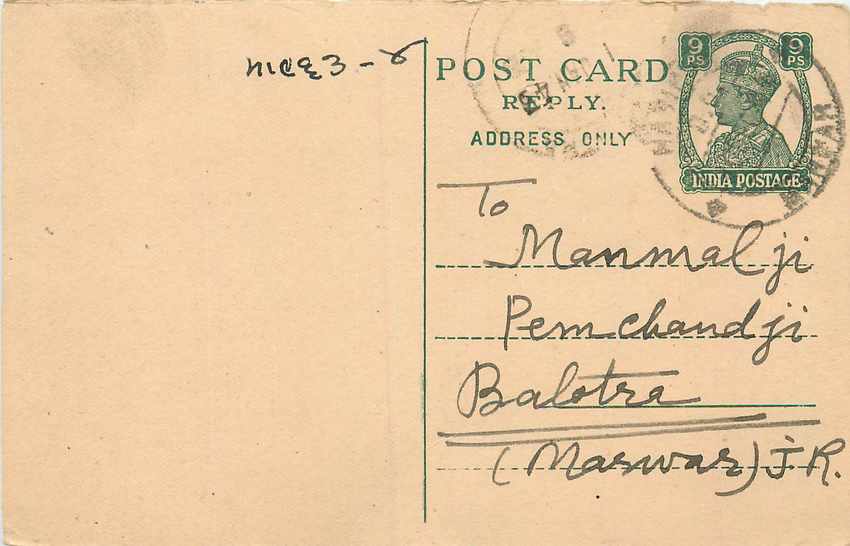 POST CARD
REPLY.
ADDRESS ONLY
9 PS 9 PS
INDIA POSTAGE
To
Manmalji
Pemchandji
Balotra
(Marwar) J.R.